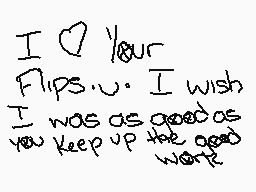 I ♡ Your
Flips.u. I wish
I was as good as
you keep up the good
work